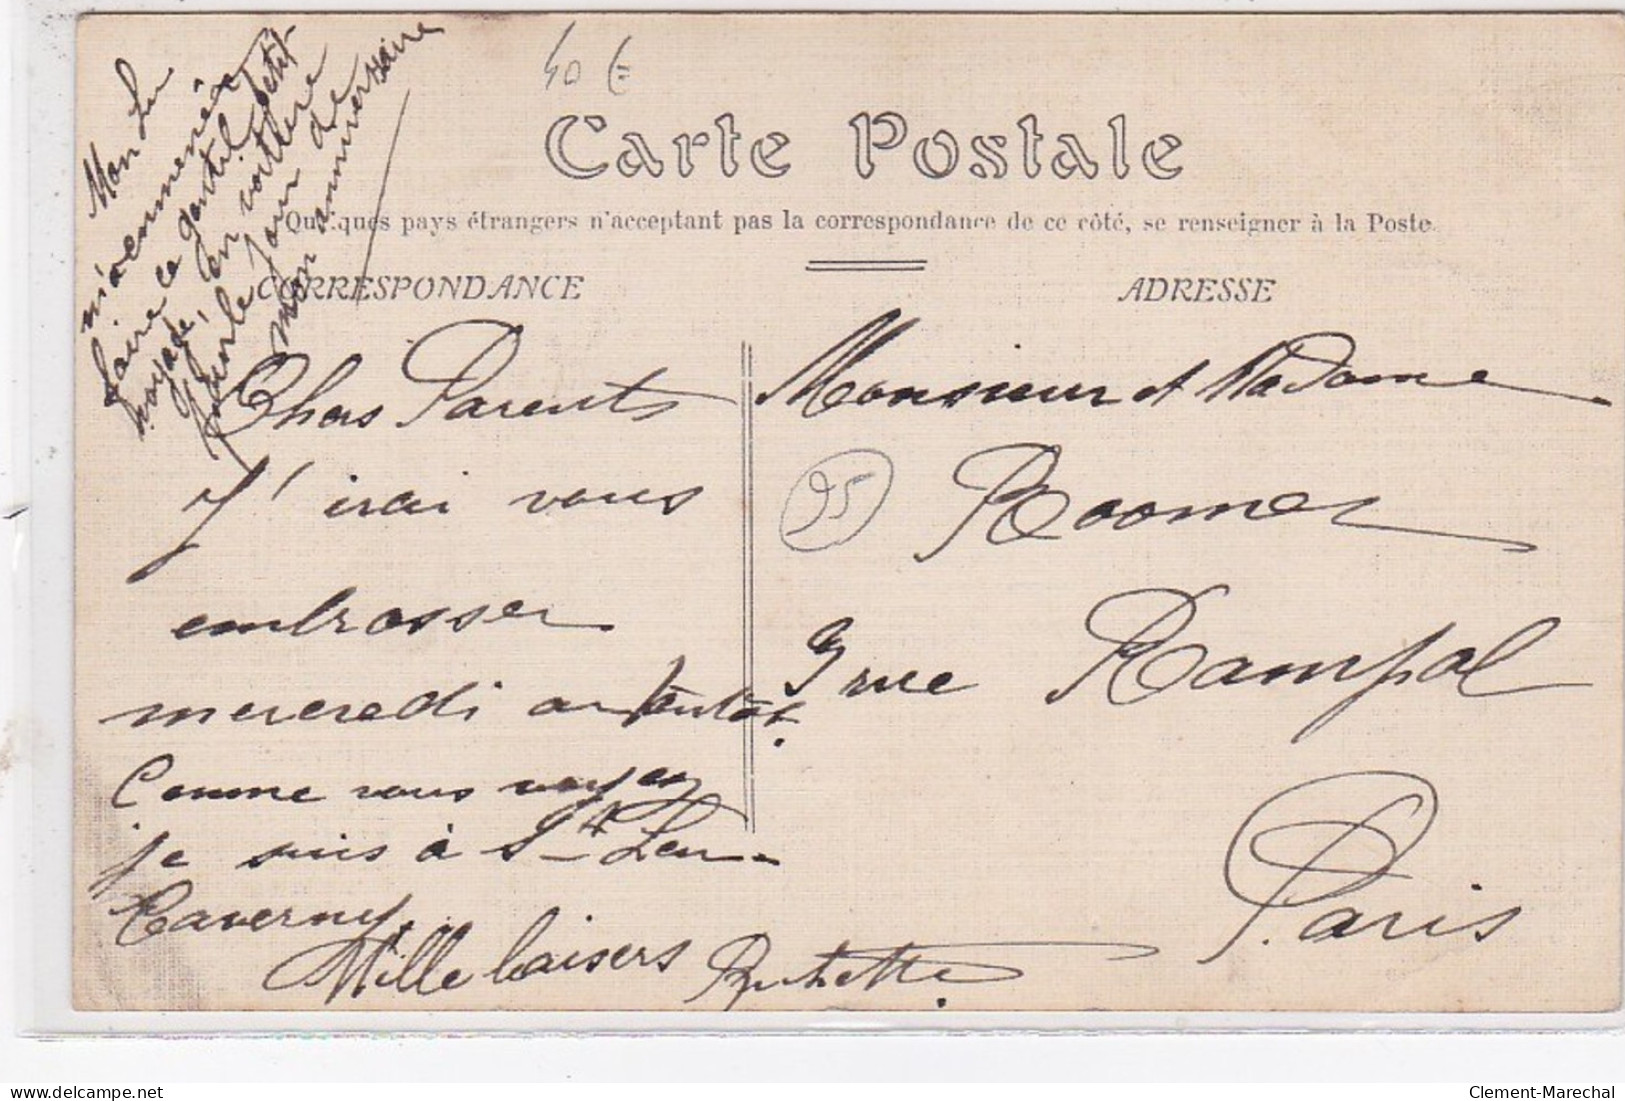 40 €
Carte Postale
Quelques pays étrangers n'acceptant pas la correspondance de ce côté, se renseigner à la Poste.
CORRESPONDANCE
ADRESSE
Mon Lu
m'a emmenée
faire ce gentil petit
voyage, en voiture
pour le jour de
mon anniversaire
Chers Parents
J'irai vous
embrasser
mercredi
Comme vous voyez
je suis à St Leu-
Taverny
Mille baisers
Monsieur et Madame
95
Roomer
9 rue Rampal
Paris
Clement-Marechal